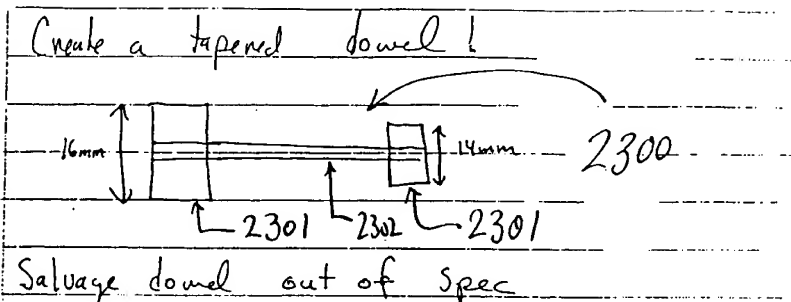 Create a tapered dowel!
16mm
14mm
2300
2301
2302
2301
Salvage dowel out of spec